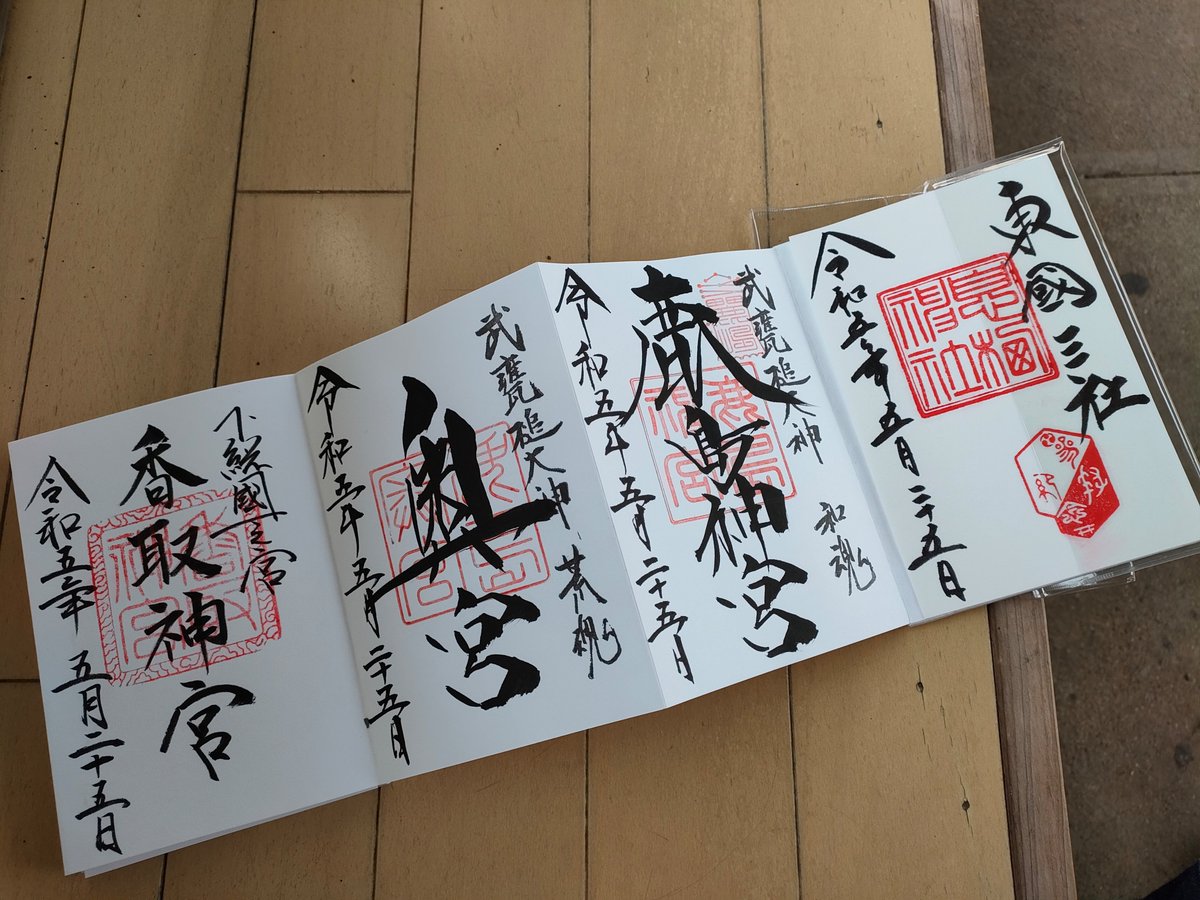 東國三社
息栖
神社
令和五年五月二十五日
武甕槌大神 和魂
鹿島神宮
鹿島
神宮
令和五年五月二十五日
武甕槌大神 荒魂
奥宮
令和五年五月二十五日
下総國一之宮
香取神宮
令和五年五月二十五日